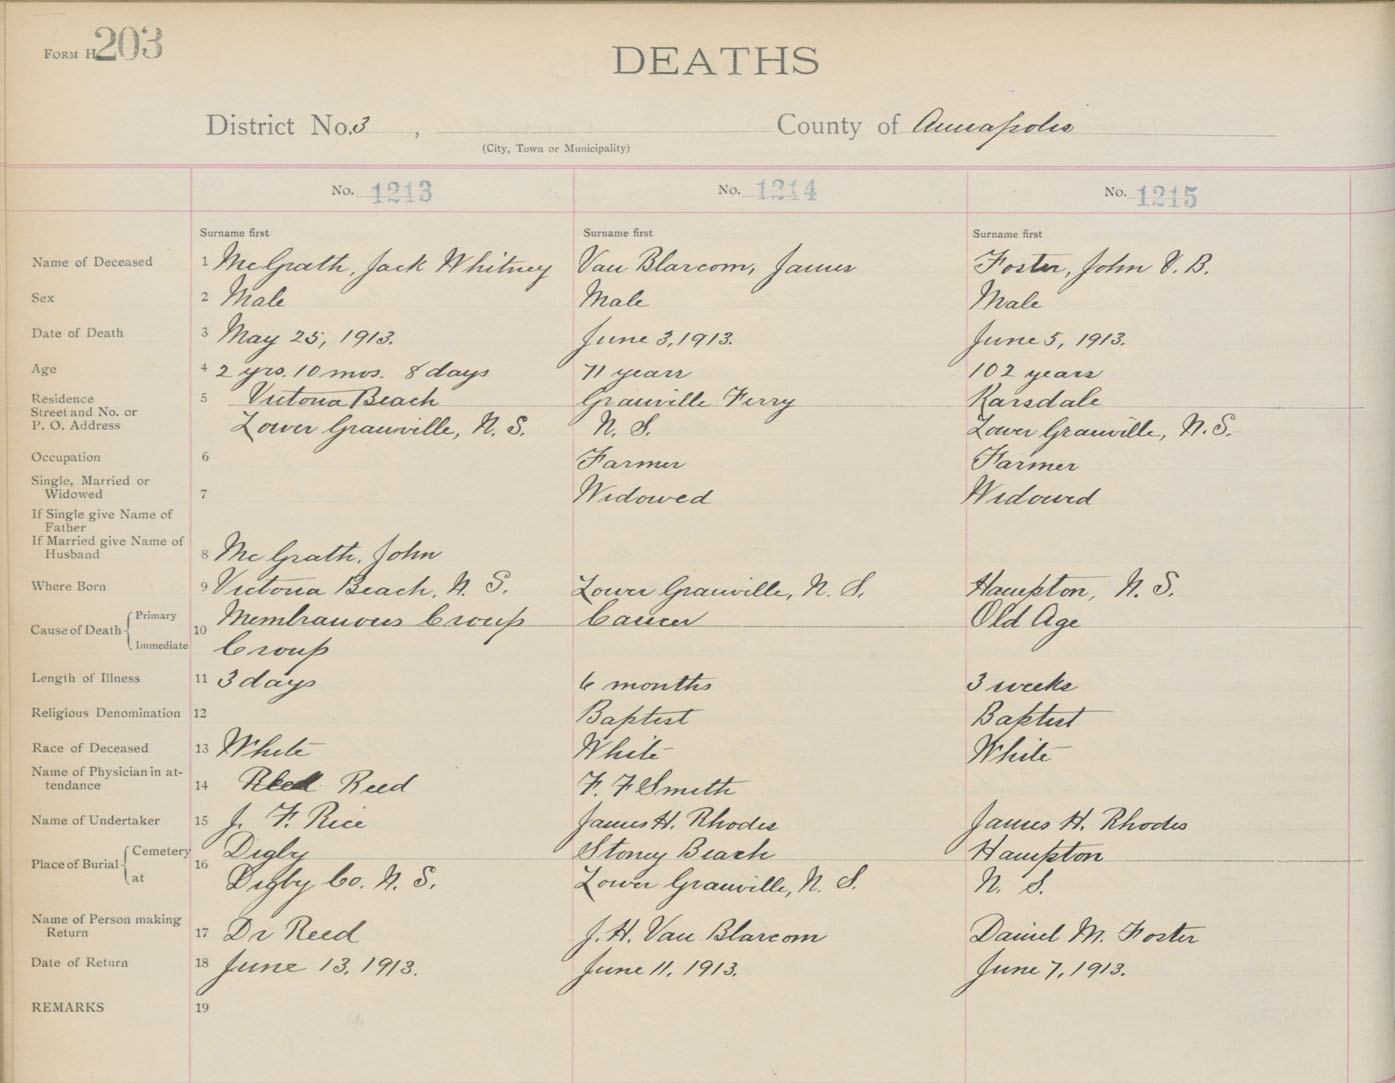 Form H 203
DEATHS
District No. 3 , County of Annapolis
(City, Town or Municipality)
No. 1213 No. 1214 No. 1215
Surname first Surname first Surname first
Name of Deceased 1 McGrath, Jack Whitney Van Blarcom, James Foster, John V. B.
Sex 2 Male Male Male
Date of Death 3 May 25, 1913. June 3, 1913. June 5, 1913.
Age 4 2 yrs. 10 mos. 8 days 71 years 102 years
Residence 5 Victoria Beach Granville Ferry Karsdale
Street and No. or
P. O. Address Lower Granville, N. S. N. S. Lower Granville, N. S.
Occupation 6 Farmer Farmer
Single, Married or
Widowed 7 Widowed Widowed
If Single give Name of
Father
If Married give Name of
Husband 8 McGrath, John
Where Born 9 Victoria Beach, N. S. Lower Granville, N. S. Hampton, N. S.
Cause of Death Primary 10 Membranous Croup Cancer Old Age
Immediate Croup
Length of Illness 11 3 days 6 months 3 weeks
Religious Denomination 12 Baptist Baptist
Race of Deceased 13 White White White
Name of Physician in at-
tendance 14 Reed F. F Smith
Name of Undertaker 15 J. F. Rice James H. Rhodes James H. Rhodes
Place of Burial Cemetery 16 Digby Stoney Beach Hampton
at Digby Co. N. S. Lower Granville, N. S. N. S.
Name of Person making
Return 17 Dr Reed J. H. Van Blarcom Daniel M. Foster
Date of Return 18 June 13, 1913. June 11, 1913. June 7, 1913.
REMARKS 19